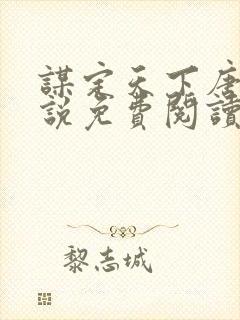 謀定天下唐
說免費閱讀
黎志城